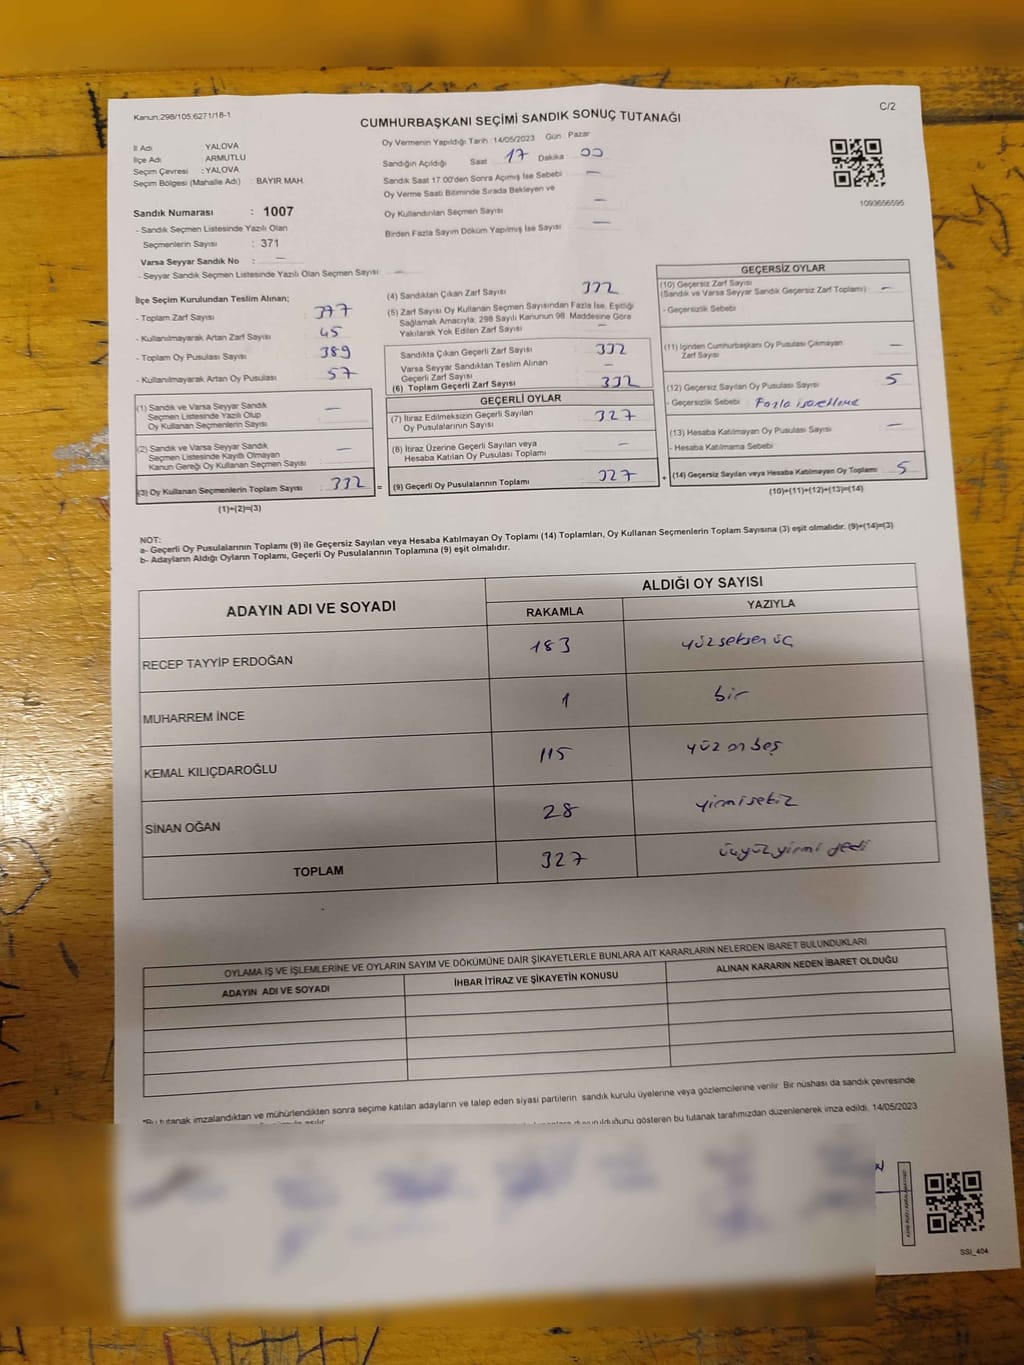 Kanun:298/105;6271/18-1
C/2
CUMHURBAŞKANI SEÇİMİ SANDIK SONUÇ TUTANAĞI
İl Adı : YALOVA
İlçe Adı : ARMUTLU
Seçim Çevresi : YALOVA
Seçim Bölgesi (Mahalle Adı) : BAYIR MAH.
Sandık Numarası : 1007
- Sandık Seçmen Listesinde Yazılı Olan
Seçmenlerin Sayısı : 371
Varsa Seyyar Sandık No : —
- Seyyar Sandık Seçmen Listesinde Yazılı Olan Seçmen Sayısı : —
Oy Vermenin Yapıldığı Tarih : 14/05/2023 Gün : Pazar
Sandığın Açıldığı Saat 17 Dakika : 00
Sandık Saat 17:00'den Sonra Açımış İse Sebebi —
Oy Verme Saati Bitiminde Sırada Bekleyen ve
Oy Kullandırılan Seçmen Sayısı —
Birden Fazla Sayım Döküm Yapılmış İse Sayısı —
1093656595
İlçe Seçim Kurulundan Teslim Alınan;
- Toplam Zarf Sayısı : 377
- Kullanılmayarak Artan Zarf Sayısı : 45
- Toplam Oy Pusulası Sayısı : 389
- Kullanılmayarak Artan Oy Pusulası : 57
(1) Sandık ve Varsa Seyyar Sandık
Seçmen Listesinde Yazılı Olup
Oy Kullanan Seçmenlerin Sayısı : —
(2) Sandık ve Varsa Seyyar Sandık
Seçmen Listesinde Kayıtlı Olmayan
Kanun Gereği Oy Kullanan Seçmen Sayısı : —
(3) Oy Kullanan Seçmenlerin Toplam Sayısı : 332 =
(1)+(2)=(3)
(4) Sandıktan Çıkan Zarf Sayısı : 332
(5) Zarf Sayısı Oy Kullanan Seçmen Sayısından Fazla İse, Eşitliği
Sağlamak Amacıyla; 298 Sayılı Kanunun 98. Maddesine Göre
Yakılarak Yok Edilen Zarf Sayısı : —
Sandıkta Çıkan Geçerli Zarf Sayısı : 332
Varsa Seyyar Sandıktan Teslim Alınan
Geçerli Zarf Sayısı : —
(6) Toplam Geçerli Zarf Sayısı : 332
GEÇERLİ OYLAR
(7) İtiraz Edilmeksizin Geçerli Sayılan
Oy Pusulalarının Sayısı : 327
(8) İtiraz Üzerine Geçerli Sayılan veya
Hesaba Katılan Oy Pusulası Toplamı : —
(9) Geçerli Oy Pusulalarının Toplamı : 327 +
GEÇERSİZ OYLAR
(10) Geçersiz Zarf Sayısı
(Sandık ve Varsa Seyyar Sandık Geçersiz Zarf Toplamı) : —
- Geçersizlik Sebebi :
(11) İçinden Cumhurbaşkanı Oy Pusulası Çıkmayan
Zarf Sayısı : —
(12) Geçersiz Sayılan Oy Pusulası Sayısı : 5
- Geçersizlik Sebebi : Fazla işaretleme
(13) Hesaba Katılmayan Oy Pusulası Sayısı : —
- Hesaba Katılmama Sebebi :
(14) Geçersiz Sayılan veya Hesaba Katılmayan Oy Toplamı : 5
(10)+(11)+(12)+(13)=(14)
NOT:
a- Geçerli Oy Pusulalarının Toplamı (9) ile Geçersiz Sayılan veya Hesaba Katılmayan Oy Toplamı (14) Toplamları, Oy Kullanan Seçmenlerin Toplam Sayısına (3) eşit olmalıdır. (9)+(14)=(3)
b- Adayların Aldığı Oyların Toplamı, Geçerli Oy Pusulalarının Toplamına (9) eşit olmalıdır.
ADAYIN ADI VE SOYADI
ALDIĞI OY SAYISI
RAKAMLA YAZIYLA
RECEP TAYYİP ERDOĞAN 183 yüzseksen üç
MUHARREM İNCE 1 bir
KEMAL KILIÇDAROĞLU 115 yüz on beş
SİNAN OĞAN 28 yirmisekiz
TOPLAM 327 üçyüzyirmi yedi
OYLAMA İŞ VE İŞLEMLERİNE VE OYLARIN SAYIM VE DÖKÜMÜNE DAİR ŞİKAYETLERLE BUNLARA AİT KARARLARIN NELERDEN İBARET BULUNDUKLARI
ADAYIN ADI VE SOYADI İHBAR İTİRAZ VE ŞİKAYETİN KONUSU ALINAN KARARIN NEDEN İBARET OLDUĞU
*Bu tutanak imzalandıktan ve mühürlendikten sonra seçime katılan adayların ve talep eden siyasi partilerin sandık kurulu üyelerine veya gözlemcilerine verilir. Bir nüshası da sandık çevresinde
duyurulduğunu gösteren bu tutanak tarafımızdan düzenlenerek imza edildi. 14/05/2023
SSI_404